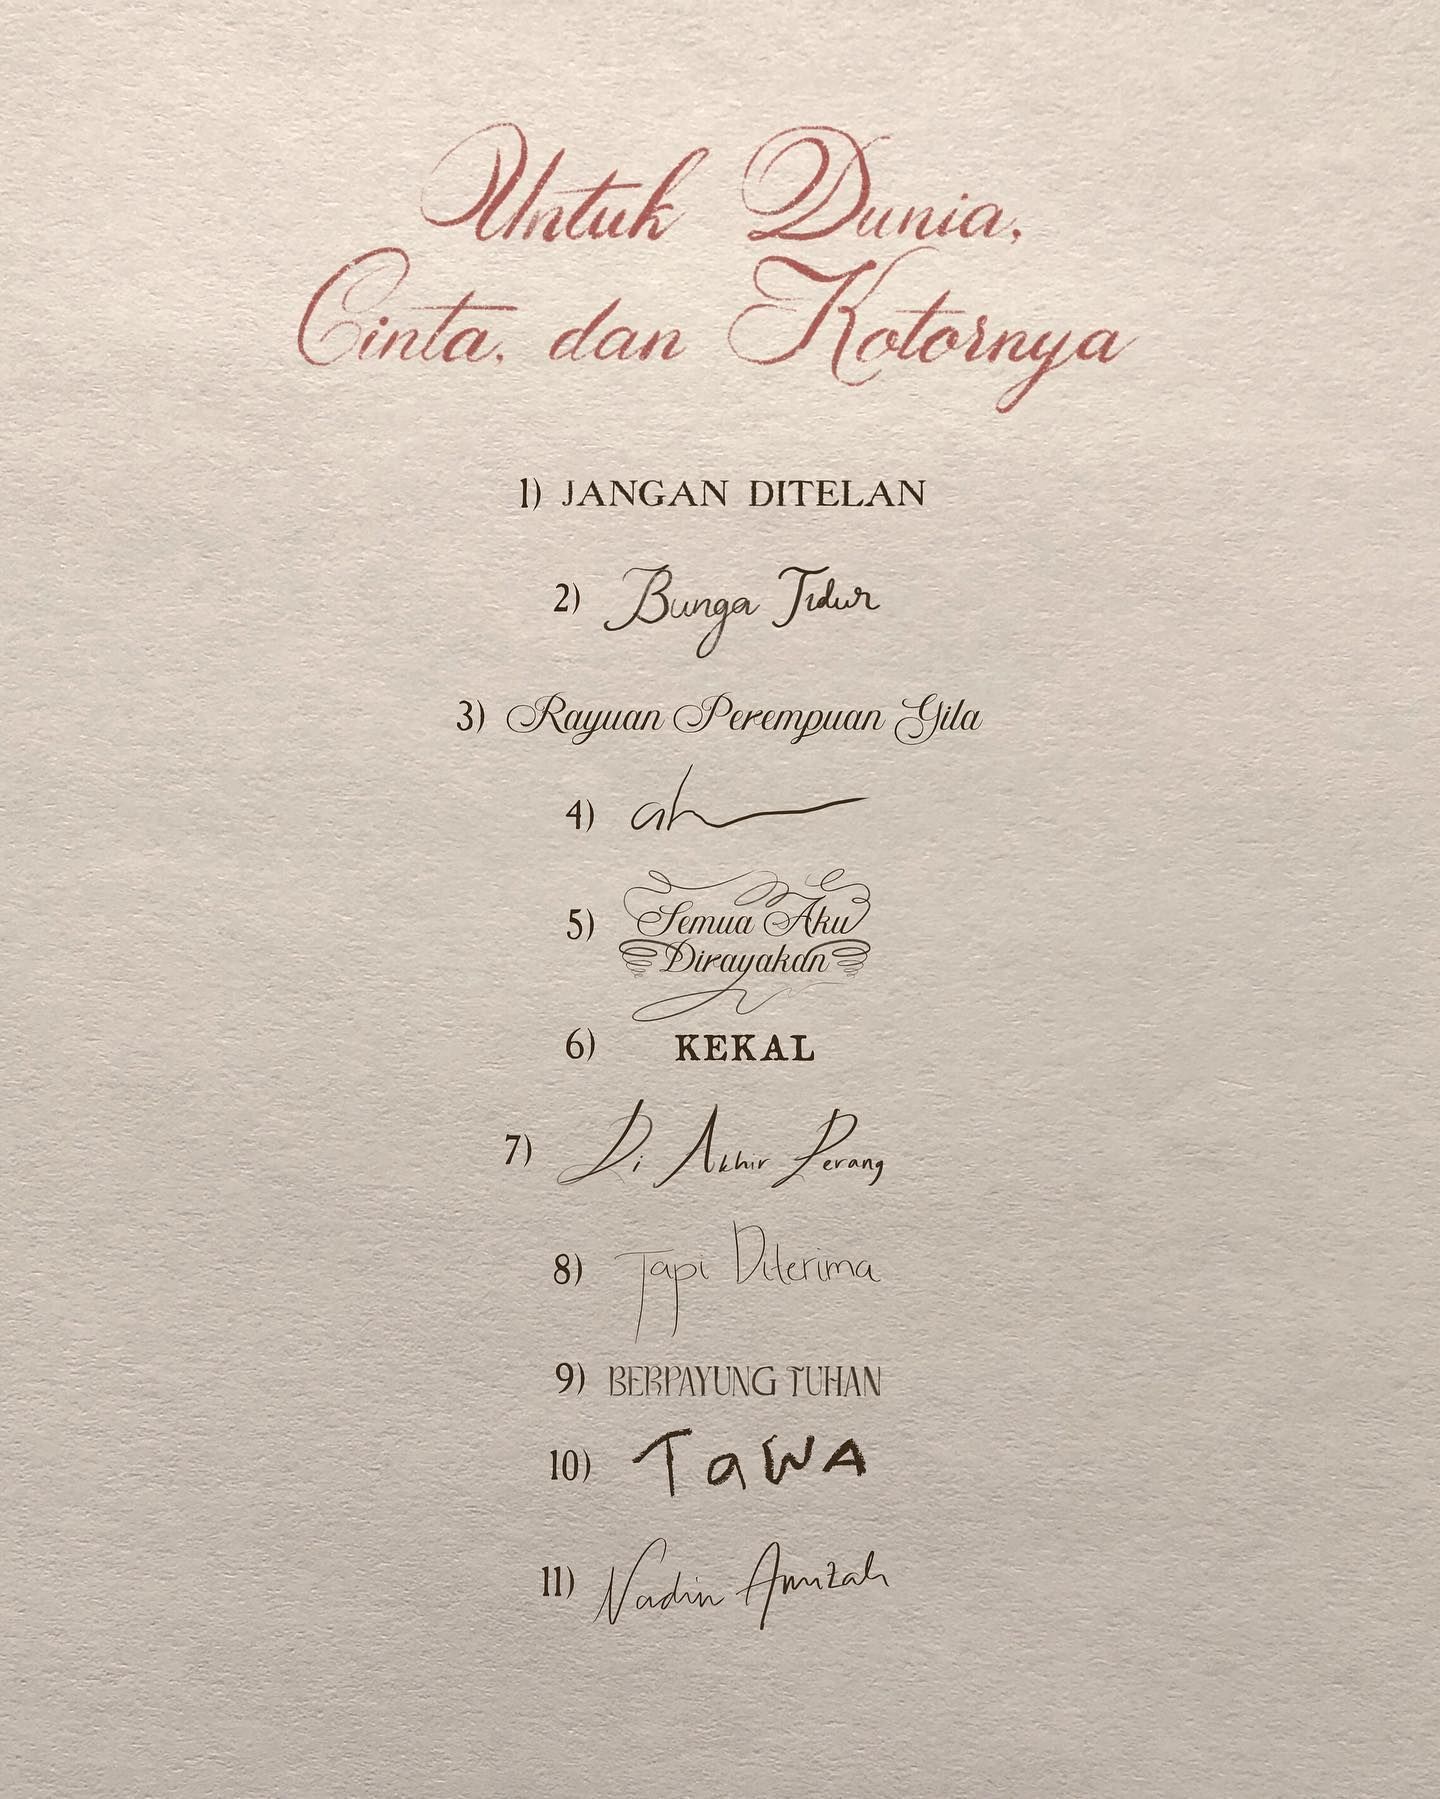 Untuk Dunia,
Cinta, dan Kotornya
1) JANGAN DITELAN
2) Bunga Tidur
3) Rayuan Perempuan Gila
4) ah
5) Semua Aku
Dirayakan
6) KEKAL
7) Di Akhir Perang
8) Tapi Diterima
9) BERPAYUNG TUHAN
10) TaWA
11) Nadin Amizah